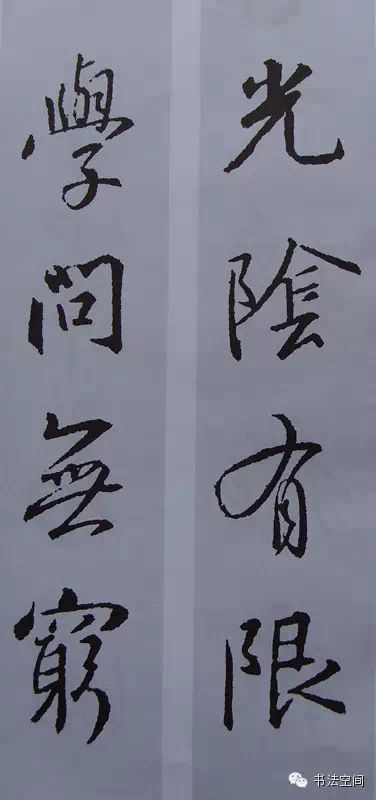 光陰有限
學問無窮
书法空间